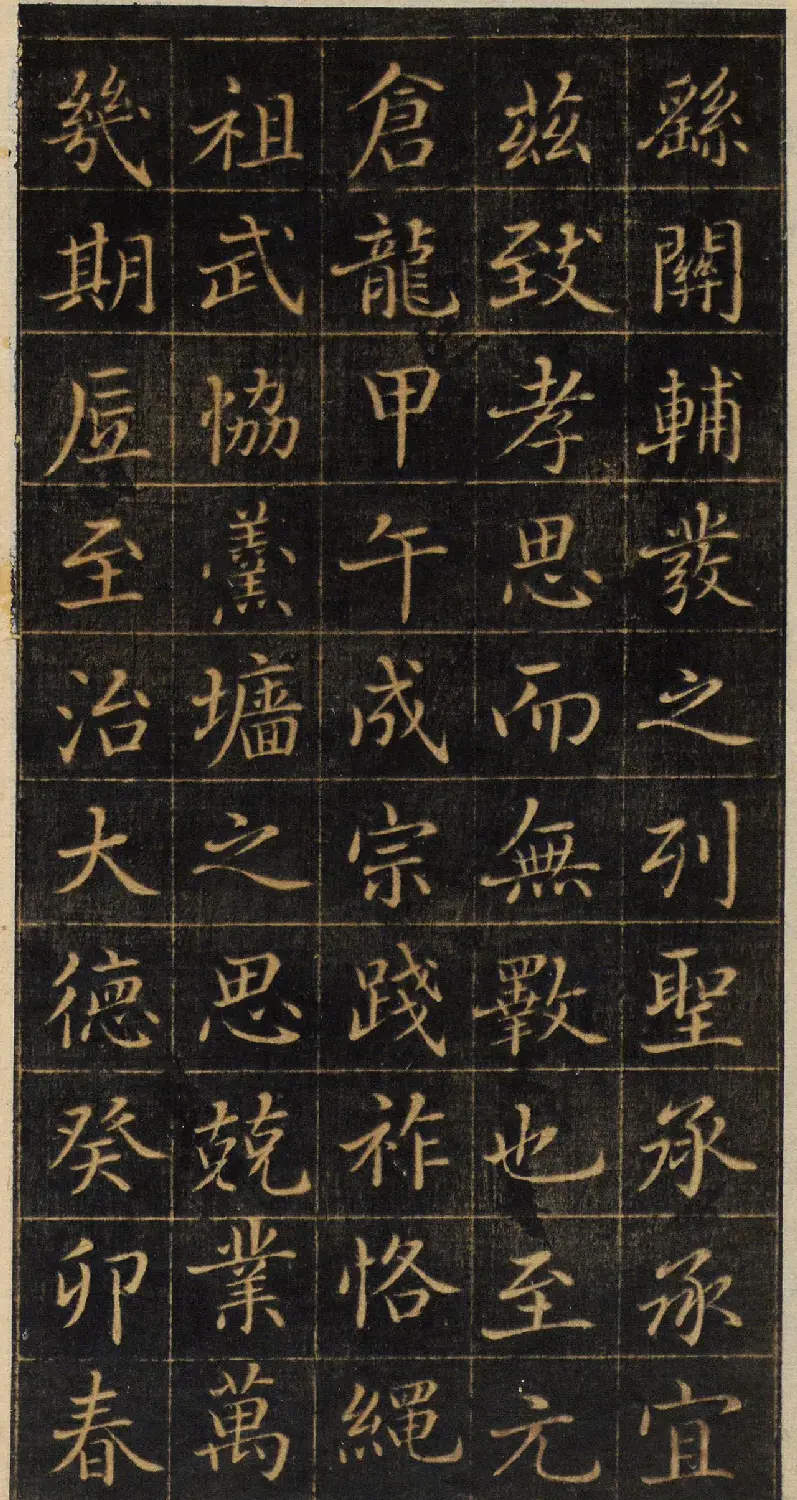 繇關輔發之列聖承承宜
茲致孝思而無斁也至元
倉龍甲午成宗踐祚恪繩
祖武恊羹墻之思兢業萬
㡬期底至治大德癸卯春